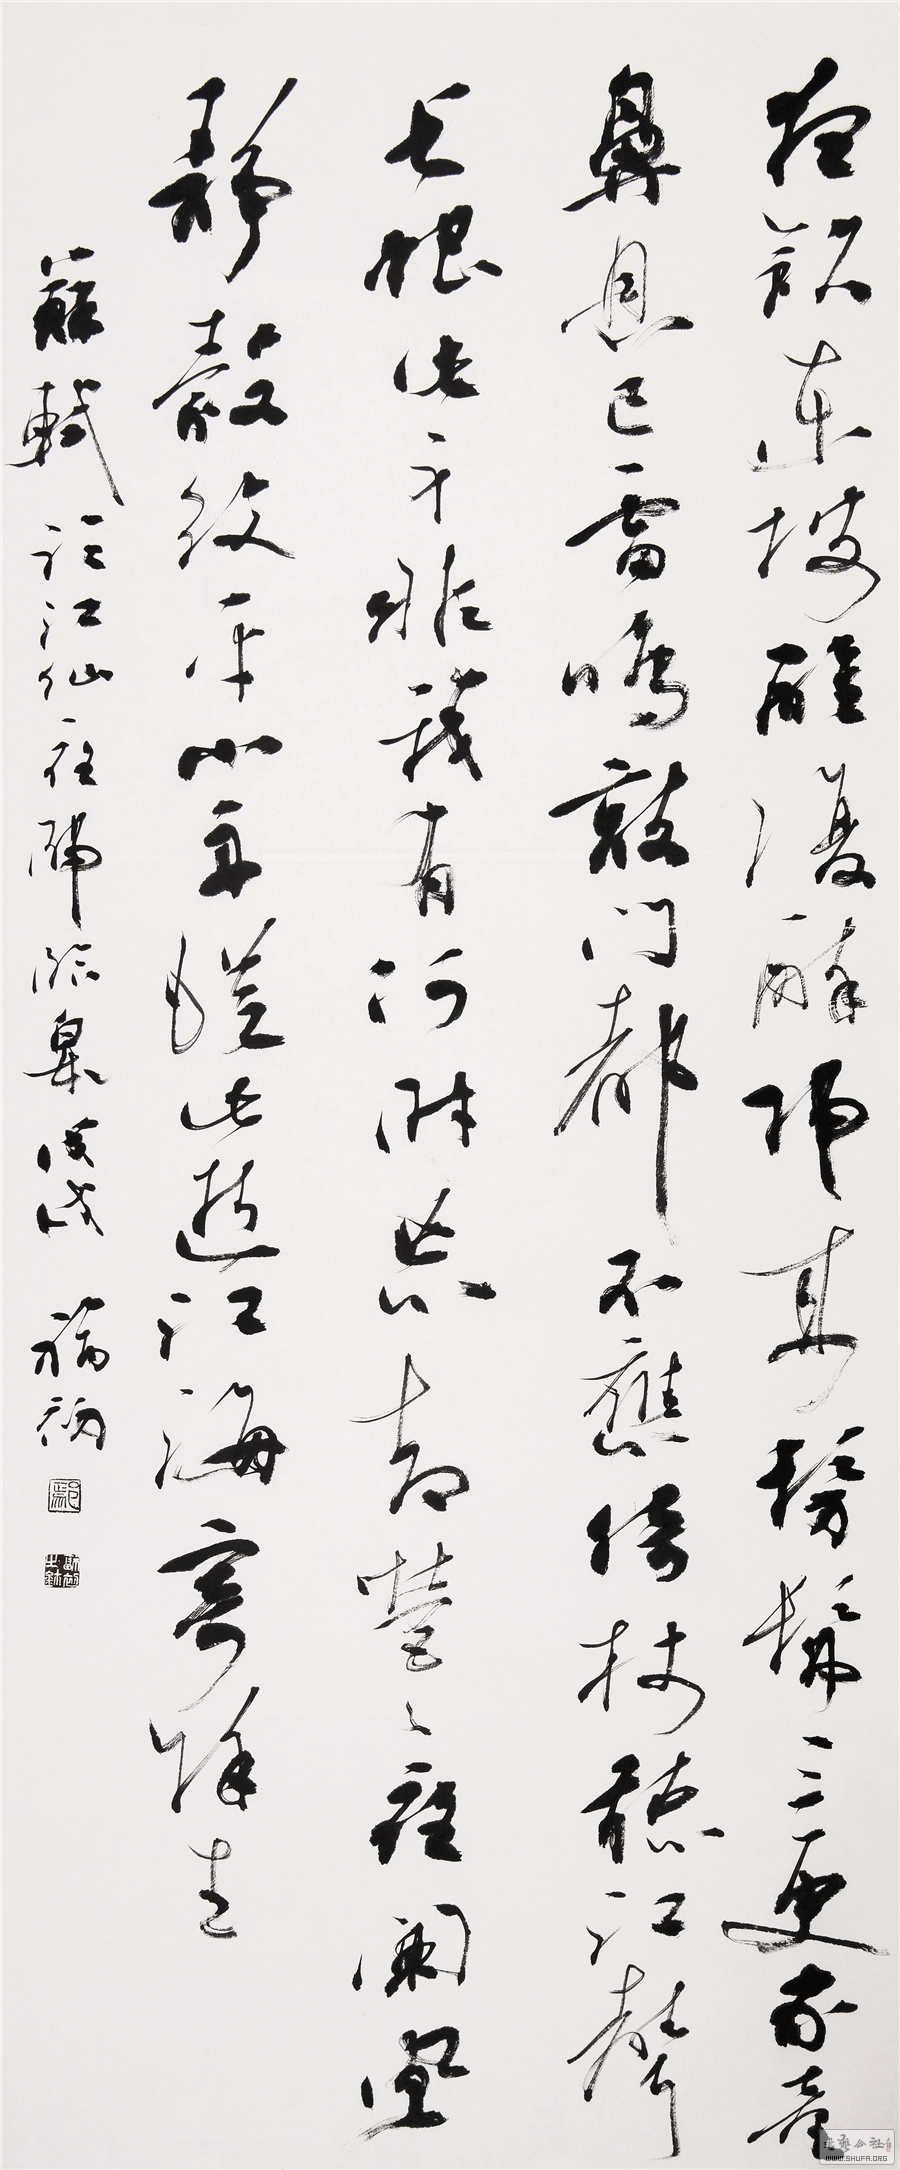 夜飲東坡醒復醉歸來髣髴三更家童
鼻息已雷鳴敲門都不應倚杖聽江聲
長恨此身非我有何時忘却營〻夜闌風
靜縠紋平小舟從此逝江海寄餘生
蘇軾臨江仙夜歸臨皋
WWW.SHUFA.ORG